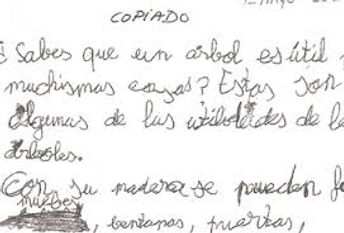 COPIADO
¿Sabes que un arbol es útil
muchismas cosas? Estas son
algunas de las utilidades de l
árboles.
Con su madera se pueden f
muebes
, bentanas, puertas,